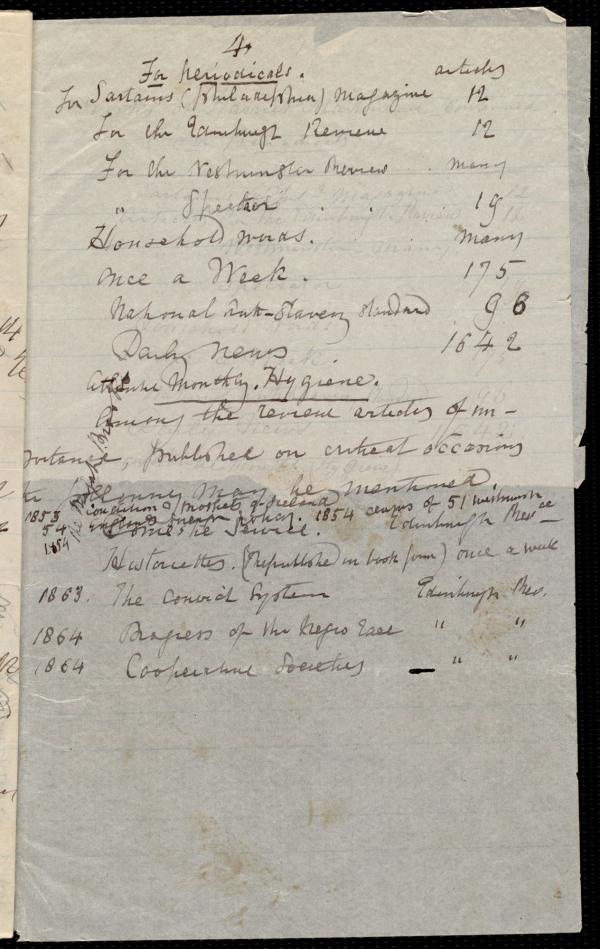 4
For periodicals. articles
For Sartains (Philadelphia) Magazine 12
For the Edinburgh Review 12
For the Westminster Review . . many
" Spectator . . . . 19
Household words. many
Once a Week. 175
National Anti-Slavery Standard 96
Daily News . 1642
Atlantic Monthly. Hygiene.
Among the review articles of im-
portance, published on critical occasions
the following may be mentioned.
1853 condition & prospects of Ireland
54 England's Foreign policy. 1854 census of 51 Westminster
1859 Domestic Service. Edinburgh Rev
Historiettes. (Republished in book form) once a week
1863. The Convict System Edinburgh Rev.
1864 Progress of the Negro Race " "
1864 Cooperative Societies — " "